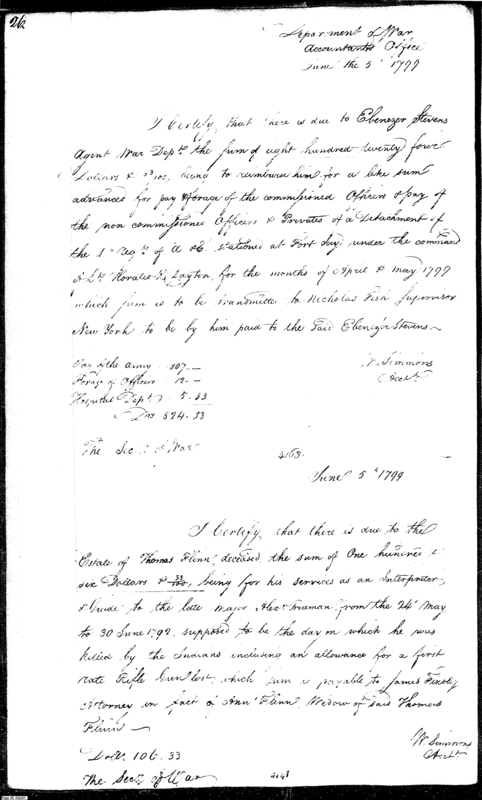 26
Department of War
Accountants Office
June the 5th 1799
I Certify, that there is due to Ebenezer Stevens
Agent War Dept. the sum of eight hundred twenty four
Dollars & 33/100, being to reimburse him for a like sum
advanced for pay & forage of the commissioned Officers & pay of
the non commissioned Officers & Privates of a Detachment of
the 1st Regt. of A & E. stationed at Fort Jay under the command
of Lt. Horatio R Dayton, for the months of April & May 1799
which sum is to be transmitted to Nicholas Fish Supervisor
New York to be by him paid to the said Ebenezer Stevens
Pay of the Army 807.—
Forage of Officers 12.—
Hospital Dept. 5.33
Drs 824.33
W Simmons
Acct.
The Sec. of War
4163
June 5th 1799
I Certify, that there is due to the
Estate of Thomas Flinn, deceased, the sum of One hundred &
six Dollars & 33/100, being for his services as an Interpreter
& Guide to the late Major Alexr. Trueman, from the 24th May
to 30 June 1792, supposed to be the day on which he was
killed by the Indians inclusing an allowance for a first
rate Rifle Gun lost, which sum is payable to James Finley
Attorney in fact of Ann Flinn, Widow of said Thomas
Flinn —
Dolls. 106.33
W Simmons
Acct.
The Sec. of War